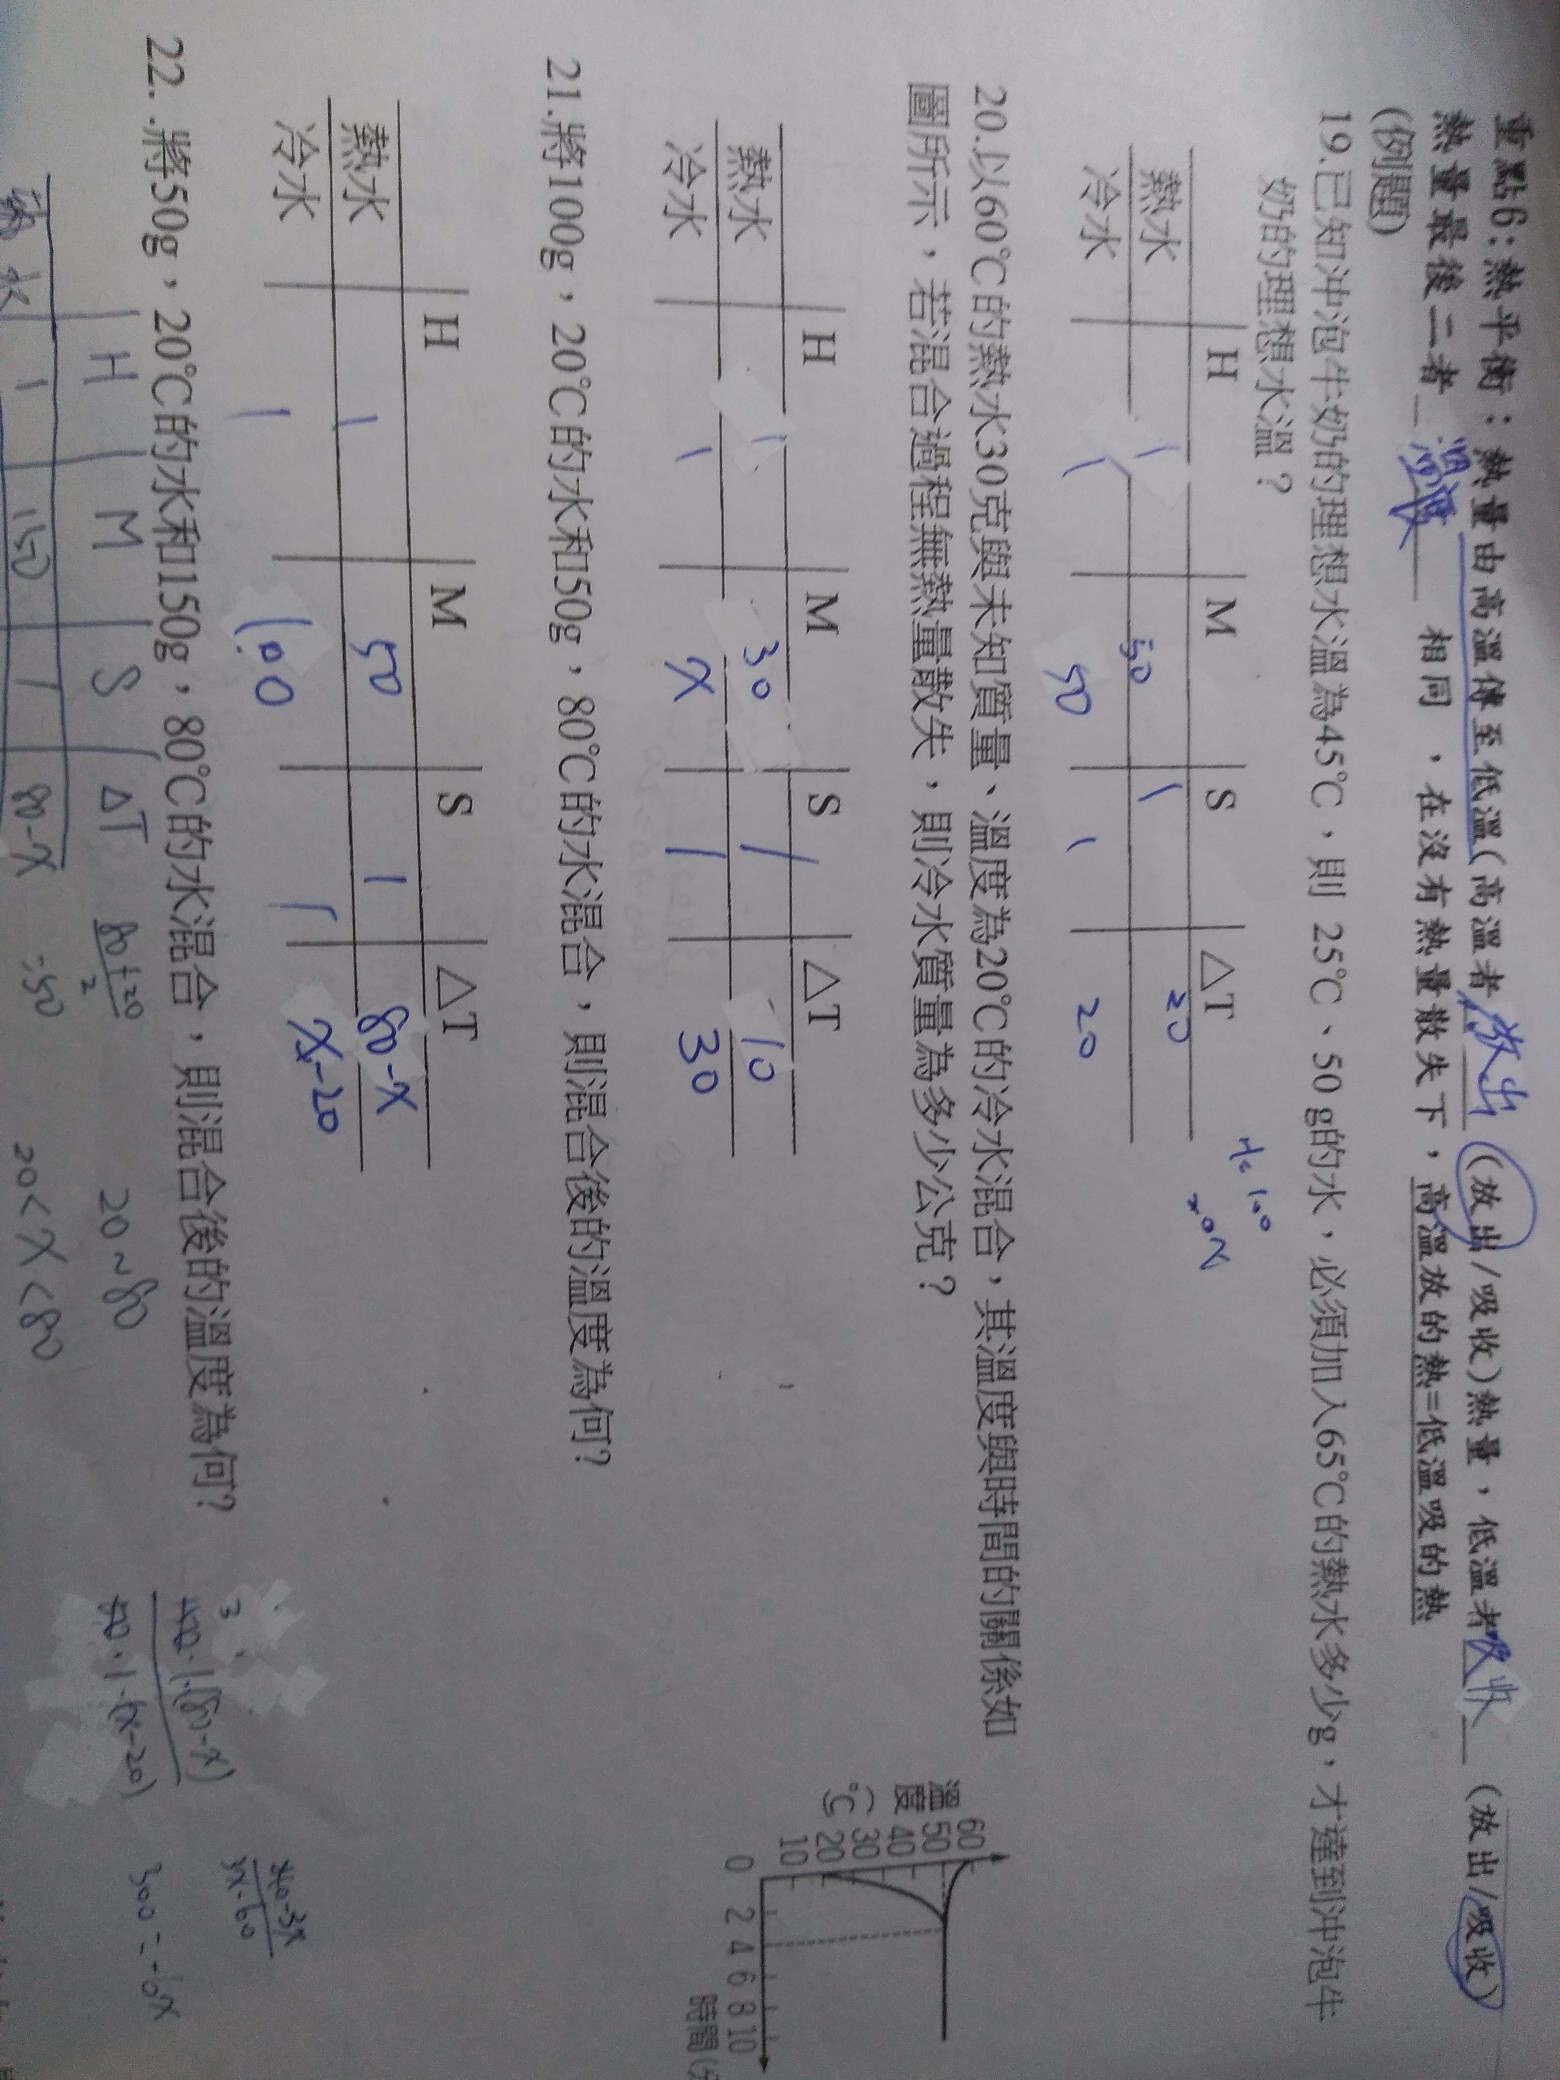 重點6:熱平衡：熱量由高溫傳至低溫(高溫者放出(放出/吸收)熱量，低溫者吸收(放出/吸收)
熱量最後二者溫度相同，在沒有熱量散失下，高溫放的熱=低溫吸的熱
(例題)
19.已知沖泡牛奶的理想水溫為45℃，則 25℃、50 g的水，必須加入65℃的熱水多少g，才達到沖泡牛
奶的理想水溫？
H M S △T
熱水 1 50 1 20
冷水 1 50 1 20
20.以60℃的熱水30克與未知質量、溫度為20℃的冷水混合，其溫度與時間的關係如
圖所示，若混合過程無熱量散失，則冷水質量為多少公克？
H M S △T
熱水 1 30 1 10
冷水 1 x 1 30
溫度(℃)
60
50
40
30
20
10
0 2 4 6 8 10
時間
21.將100g，20℃的水和50g，80℃的水混合，則混合後的溫度為何?
H M S △T
熱水 1 50 1 80-x
冷水 1 100 1 x-20
22..將50g，20℃的水和150g，80℃的水混合，則混合後的溫度為何?
H M S ΔT
水 1 150 1 80-x
80+20
2
=50
20~80
20<x<80
3
·1·(80-x)
50·1·(x-20)
3x-60